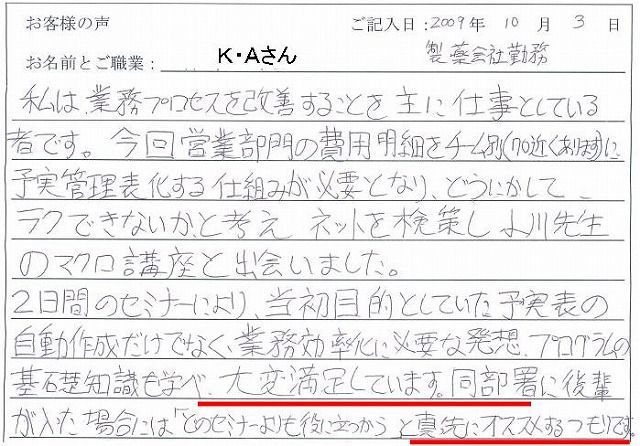 お客様の声 ご記入日:2009年 10月 3日
お名前とご職業: K・Aさん 製薬会社勤務
私は、業務プロセスを改善することを主に仕事としている
者です。今回営業部門の費用明細をチーム別(70近くあります)に
予実管理表化する仕組みが必要となり、どうにかして
ラクできないか、と考え ネットを検策し 小川先生
のマクロ講座と出会いました。
2日間のセミナーにより、当初目的としていた予実表の
自動作成だけでなく、業務効率化に必要な発想、プログラムの
基礎知識も学べ、大変満足しています。同部署に後輩
が入った場合には「どのセミナーよりも役に立つから」と真先にオススメするつもりです。